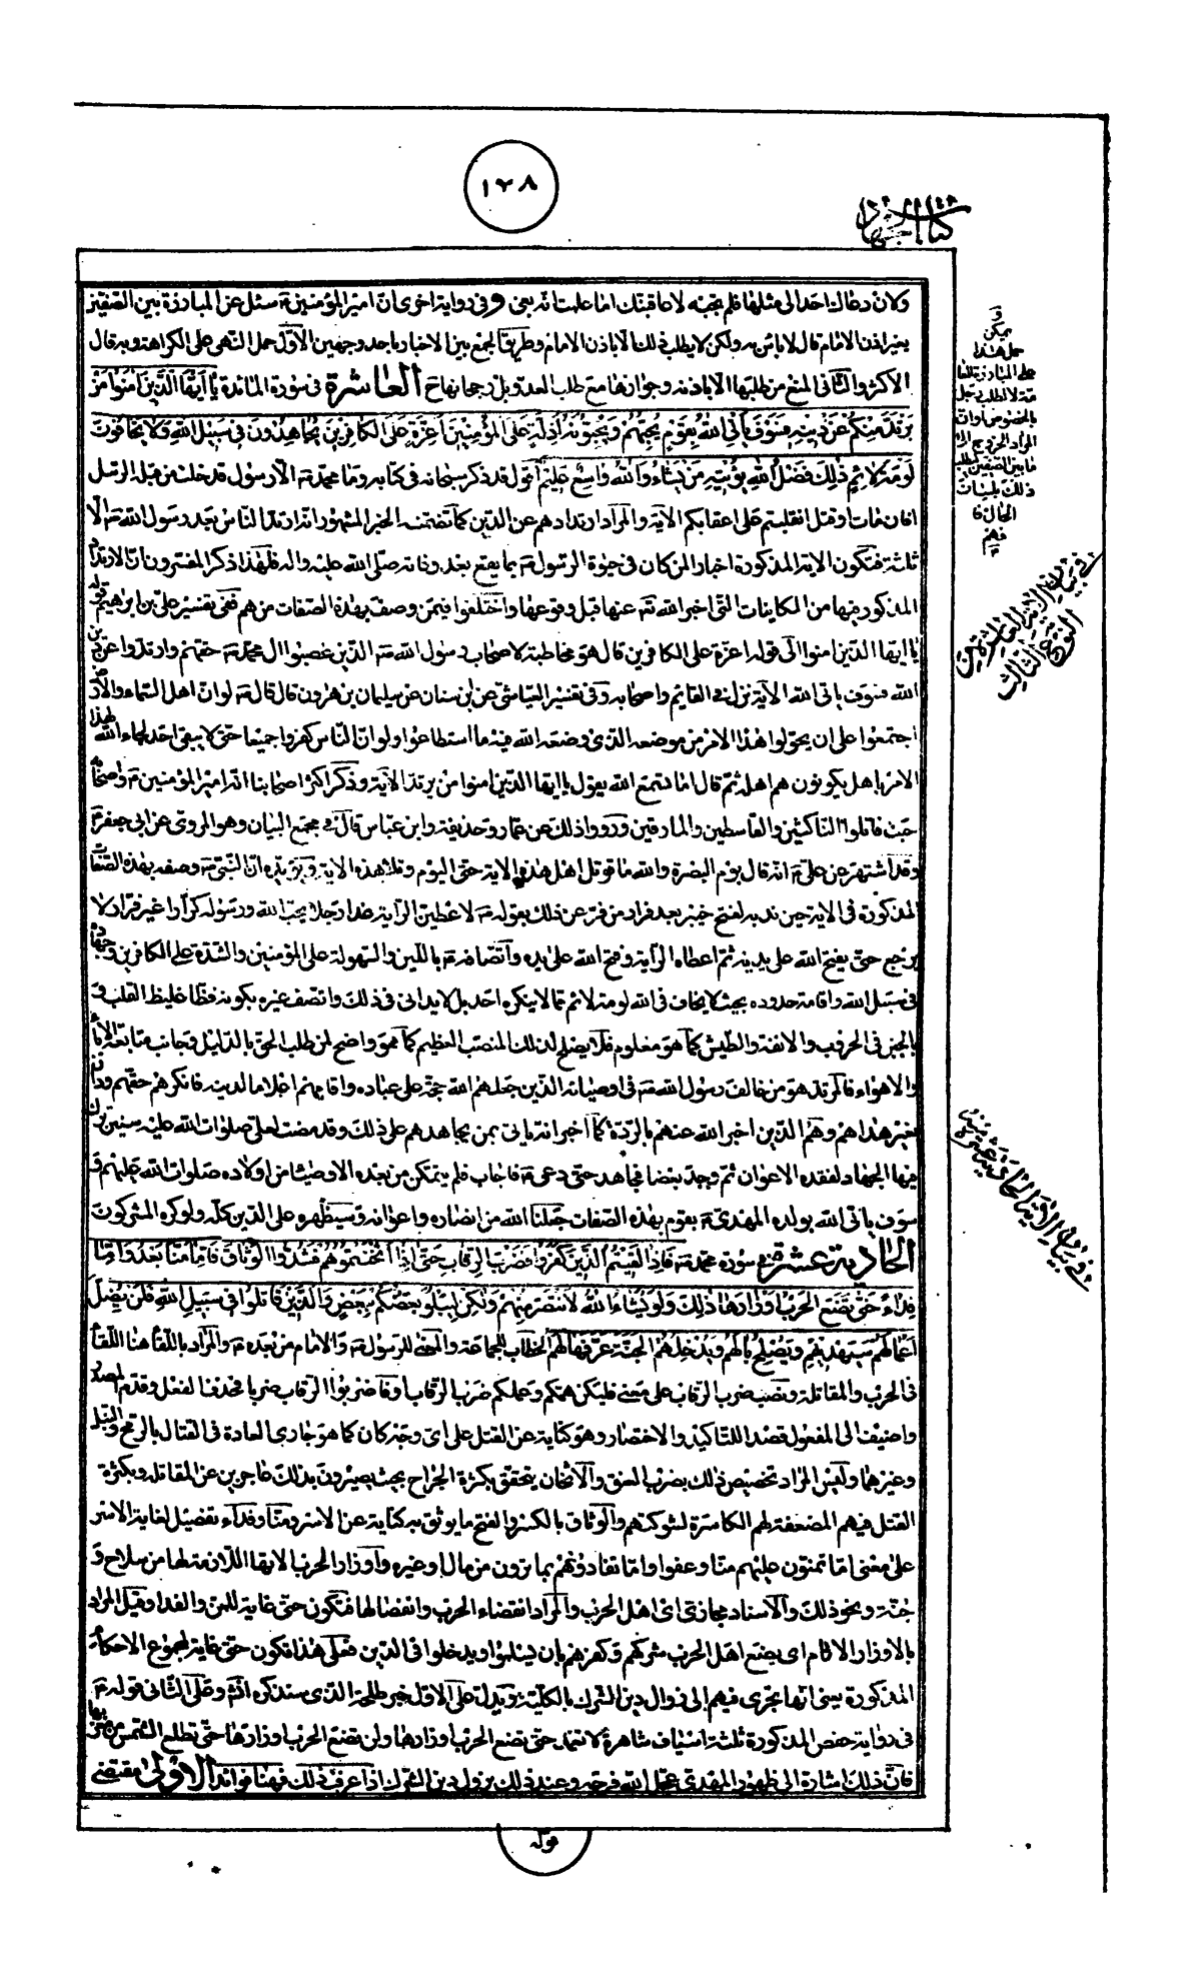 ١٢٨
كتاب الجهاد
وكان دعاك احد الى مثلها فلم تجبه لاعاقبنك اما علمت انه بغى وفى رواية اخرى ان امير المؤمنين ع سئل عن المبارزة بين الصفين
بغير اذن الامام قال لا باس به ولكن لا يطلب ذلك الا باذن الامام وطريق الجمع بين الاخبار باحد وجهين الاول حمل النهى على الكراهة وبه قال
الاكثر والثانى المنع من طلبها الا باذنه وجوازها مع طلب العدو بل رجحانها ح العاشرة فى سورة المائدة يا ايها الذين امنوا من
يرتد منكم عن دينه فسوف ياتى الله بقوم يحبهم ويحبونه اذلة على المؤمنين اعزة على الكافرين يجاهدون فى سبيل الله ولا يخافون
لومة لائم ذلك فضل الله يؤتيه من يشاء والله واسع عليم اقول قد ذكر سبحانه فى كتابه وما محمد ص الا رسول قد خلت من قبله الرسل
افان مات او قتل انقلبتم على اعقابكم الاية والمراد ارتدادهم عن الدين كما تضمنه الخبر المشهور انه ارتد الناس بعد رسول الله ص الا
ثلثة فتكون الاية المذكورة اخبارا لمن كان فى حيوة الرسول ص بما يقع بعد وفاته صلى الله عليه واله فلهذا ذكر المفسرون ان الارتداد
المذكور فيها من الكاينات التى اخبر الله تع عنها قبل وقوعها واختلفوا فيمن وصف بهذه الصفات من هم ففى تفسير على بن ابرهيم قوله
يا ايها الذين امنوا الى قوله اعزة على الكافرين قال هو مخاطبة لاصحاب رسول الله ص الذين غصبوا ال محمد ص حقهم وارتدوا عن دين
الله فسوف ياتى الله الاية نزل فى القايم واصحابه وفى تفسير العياشى عن ابن سنان عن سليمان بن هرون قال قال ع لو ان اهل السماء والارض
اجتمعوا على ان يحولوا هذا الامر من موضعه الذى وضعه الله فيه ما استطاعوا ولو ان الناس كفروا جميعا حتى لا يبقى احد لجاء الله لهذا
الامر باهل يكونون هم اهله ثم قال اما تسمع الله يقول يا ايها الذين امنوا من يرتد الاية وذكر اكثر اصحابنا انه امير المؤمنين ع واصحابه
حيث قاتلوا الناكثين والقاسطين والمارقين ورووا ذلك عن عمار وحذيفة وابن عباس قال فى مجمع البيان وهو المروى عن ابى جعفر ع
وقد اشتهر عن على ع انه قال يوم البصرة والله ما قوتل اهل هذه الاية حتى اليوم وتلا هذه الاية ويؤيده ان النبى ص وصفه بهذه الصفات
المذكورة فى الاية حين ندبه لفتح خيبر بعد فرار من فر عن ذلك بقوله ص لاعطين الراية غدا رجلا يحب الله ورسوله كرارا غير فرار لا
يرجع حتى يفتح الله على يديه ثم اعطاه الراية وفتح الله على يده واتصافه ع باللين والسهولة على المؤمنين والشدة على الكافرين وجهاده
فى سبيل الله واقامة حدوده بحيث لا يخاف فى الله لومة لائم مما لا ينكره احد بل لا يدانى فى ذلك واتصف غيره بكونه فظا غليظ القلب و
بالجبن فى الحروب والانفة والطيش كما هو معلوم فلا يصلح لذلك المنصب العظيم كما هو واضح لمن طلب الحق بالدليل وجانب متابعة الاباء
والاهواء فالمرتد هو من خالف رسول الله ص فى اوصيائه الذين جعلهم الله حجة على عباده واقامهم اعلاما لدينه فانكرهم حقهم ودان
بغير هداهم وهم الذين اخبر الله عنهم بالردة كما اخبر انه ياتى بمن يجاهدهم على ذلك وقد مضت لعلى صلوات الله عليه سنين ترك
فيها الجهاد لفقده الاعوان ثم وجد بعضا فجاهد حتى دعى ع فاجاب فلم يتمكن من بعده الاوصياء من اولاده صلوات الله عليهم و
سوف ياتى الله بولده المهدى ع بقوم بهذه الصفات جعلنا الله من انصاره واعوانه وسيظهره على الدين كله ولو كره المشركون
الحادية عشرة فى سورة محمد ص فاذا لقيتم الذين كفروا فضرب الرقاب حتى اذا اثخنتموهم فشدوا الوثاق فاما منا بعد واما
فداء حتى تضع الحرب اوزارها ذلك ولو يشاء الله لانتصر منهم ولكن ليبلو بعضكم ببعض والذين قاتلوا فى سبيل الله فلن يضل
اعمالهم سيهديهم ويصلح بالهم ويدخلهم الجنة عرفها لهم الخطاب للجماعة والمعنى للرسول ص والامام من بعده ع والمراد باللقاء هنا اللقاء
فى الحرب والمقاتلة ونصب ضرب الرقاب على معنى فليكن همكم وعملكم ضرب الرقاب او فاضربوا الرقاب ضربا فحذف الفعل وقدم المصدر
واضيف الى المفعول قصدا للتاكيد والاختصار وهو كناية عن القتل على اى وجه كان كما هو جارى العادة فى القتال بالرمح والنبل
وغيرهما وليس المراد تخصيص ذلك بضرب العنق والاثخان يتحقق بكثرة الجراح بحيث يصيرون بذلك عاجزين عن المقاتلة وبكثرة
القتل فيهم المضعفة لهم الكاسرة لشوكتهم والوثاق بالكسر والفتح ما يوثق به كناية عن الاسر ومنا وفداء تفصيل لغاية الاسر
على معنى اما تمنون عليهم منا وعفوا واما تفادوهم بما ترون من مال او غيره واوزار الحرب الاتها اللازمة لها من سلاح و
جنة ونحو ذلك والاسناد مجازى اى اهل الحرب والمراد انقضاء الحرب وانفصالها فتكون حتى غاية للمن والفداء وقيل المراد
بالاوزار الاثام اى يضع اهل الحرب شركهم وكفرهم بان يسلموا ويدخلوا فى الدين فعلى هذا تكون حتى غاية لمجموع الاحكام
المذكورة يعنى انها تجرى فيهم الى زوال دين الشرك بالكلية ويدل على الاول خبر طلحة الذى سنذكره انشاء وعلى الثانى قوله ع
فى رواية حفص المذكورة ثلثة اسياف شاهرة لا تغمد حتى تضع الحرب اوزارها ولن تضع الحرب اوزارها حتى تطلع الشمس من مغربها
فان ذلك اشارة الى ظهور المهدى عجل الله فرجه وعند ذلك يزول دين الشرك اذا عرفت ذلك فهنا فوائد الاولى مقتضى
قوله
و
يمكن
حمل هذا
على المبارزة الخا
صة لا لطلب رجل
بالخصوص او ان
المراد الخروج الى
ما بين الصفين لطلب
ذلك بلسان
الحال فا
فهم
فى بيان الاية العاشرة من
النوع الثالث
فى بيان الاية الحادية عشرة منه